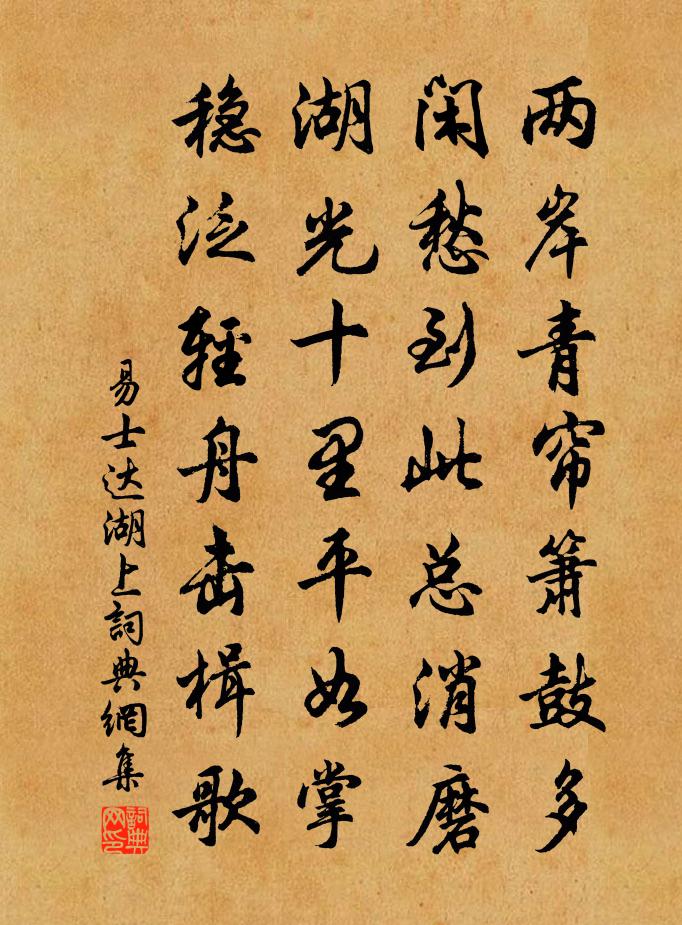 两岸青帘箫鼓多
闲愁到此总消磨
湖光十里平如掌
稳泛轻舟击楫歌
易士达湖上詞典網集
詞典网印